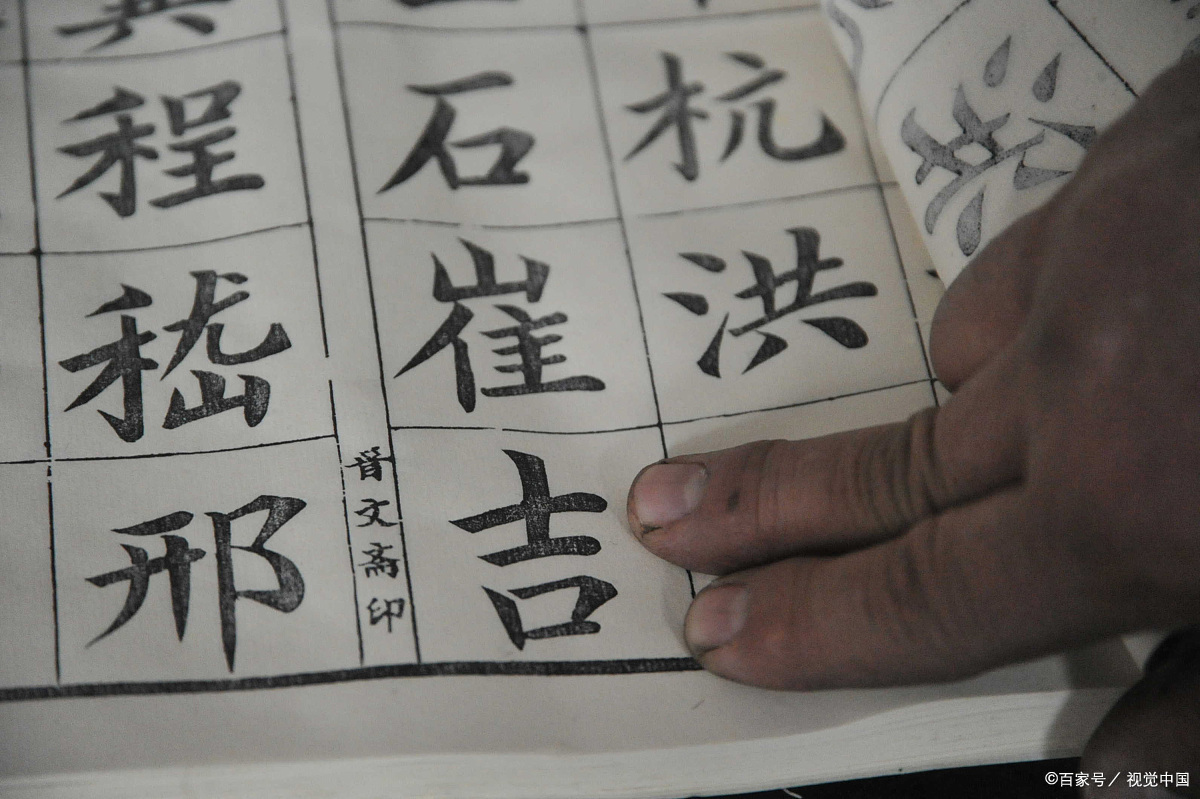 杭洪
石崔吉
晉文斋印
程嵇邢
©百家号／视觉中国